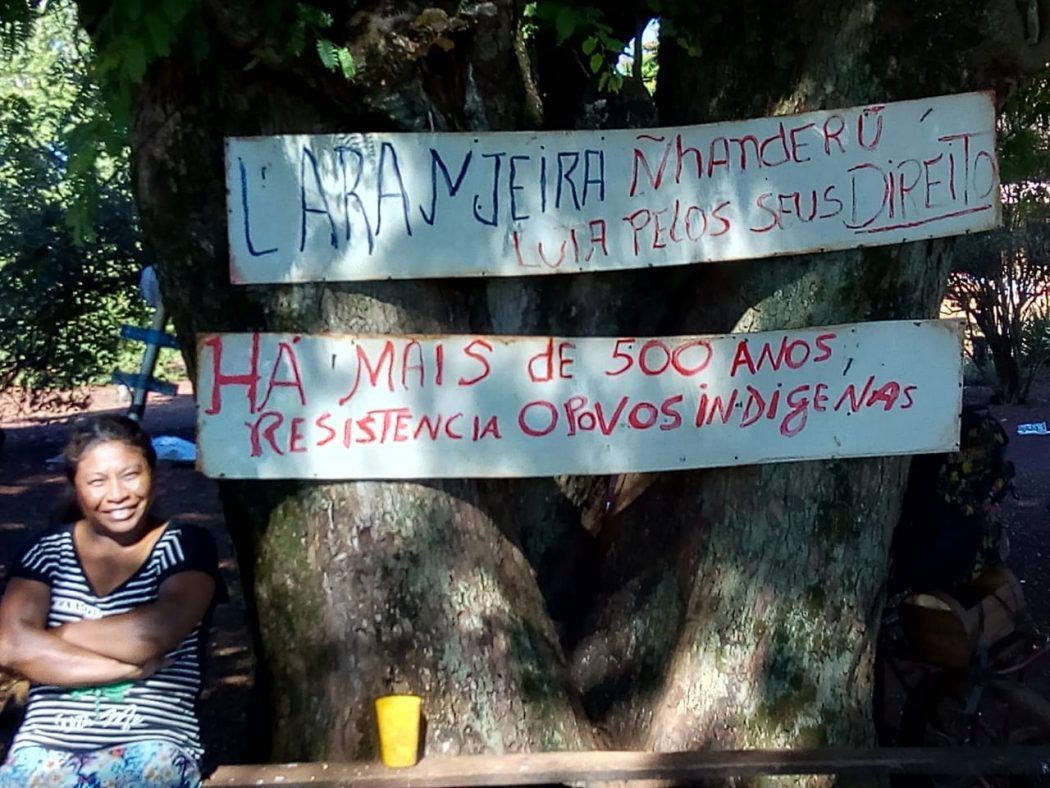 LARANJEIRA ÑhANdERŨ
LUTA PELOS SEUS DIREITO
HÁ MAIS dE 500 ANOS,
RESISTENCIA O POVOS INDIGENAS